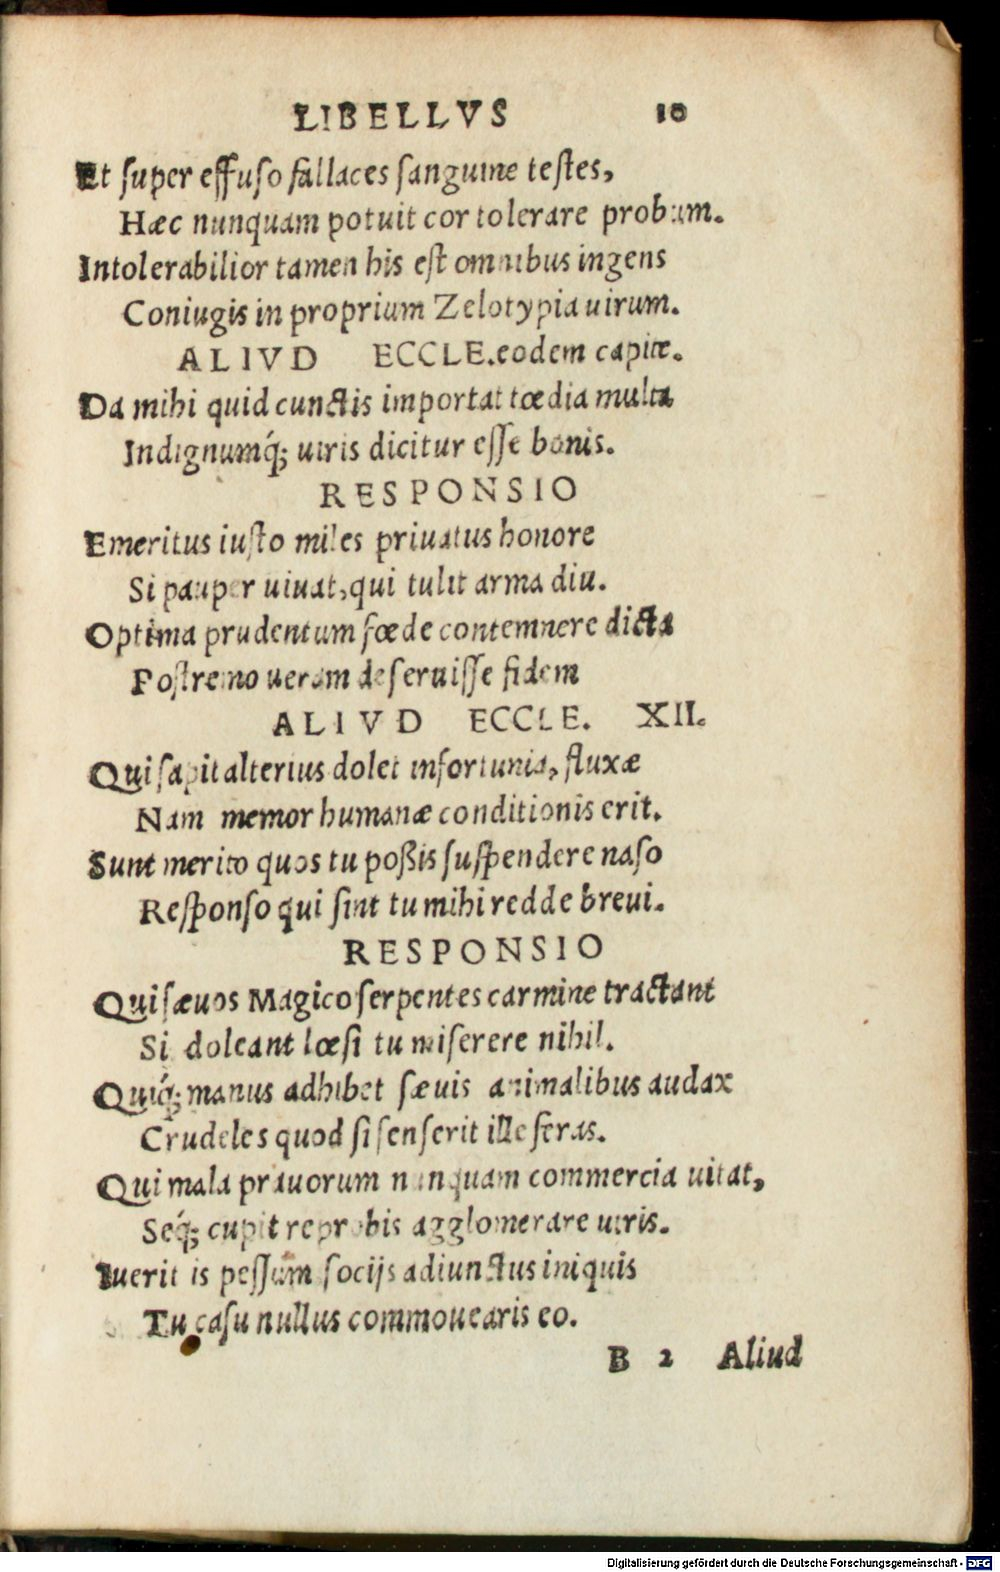 LIBELLVS 10
Et super effuso fallaces sanguine testes,
Hæc nunquam potuit cor tolerare probum.
Intolerabilior tamen his est omnibus ingens
Coniugis in proprium Zelotypia uirum.
ALIVD ECCLE. eodem capite.
Da mihi quid cunctis importat tœdia multa
Indignumq́; uiris dicitur esse bonis.
RESPONSIO
Emeritus iusto miles priuatus honore
Si pauper uiuat, qui tulit arma diu.
Optima prudentum fœde contemnere dicta
Postremo ueram deseruisse fidem
ALIVD ECCLE. XII.
Qui sapit alterius dolet infortunia, fluxæ
Nam memor humanæ conditionis erit.
Sunt merito quos tu poßis suspendere naso
Responso qui sint tu mihi redde breui.
RESPONSIO
Qui sæuos Magico serpentes carmine tractant
Si doleant lœsi tu miserere nihil.
Quiq́; manus adhibet sæuis animalibus audax
Crudeles quod si senserit ille feras.
Qui mala prauorum nunquam commercia uitat,
Seq́; cupit reprobis agglomerare uiris.
Iuerit is pessum socijs adiunctus iniquis
Tu casu nullus commouearis eo.
B 2 Aliud
Digitalisierung gefördert durch die Deutsche Forschungsgemeinschaft - DFG